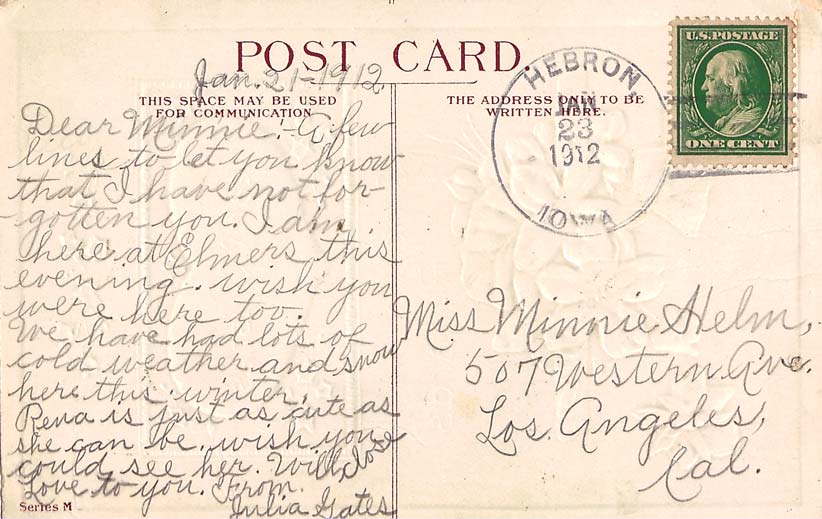 POST CARD.
Jan. 21-1912
THIS SPACE MAY BE USED
FOR COMMUNICATION
Dear Minnie:- A few
lines to let you know
that I have not for-
gotten you. I am
here at Elmers this
evening. wish you
were here too.
We have had lots of
cold weather and snow
here this winter.
Rena is just as cute as
she can be. wish you
could see her. Will close
Love to you. From.
Julia Gates
Series M
THE ADDRESS ONLY TO BE
WRITTEN HERE.
HEBRON,
JAN
23
1912
IOWA
U.S. POSTAGE
ONE CENT
Miss Minnie Helm,
507 Western Ave.
Los Angeles,
Cal.